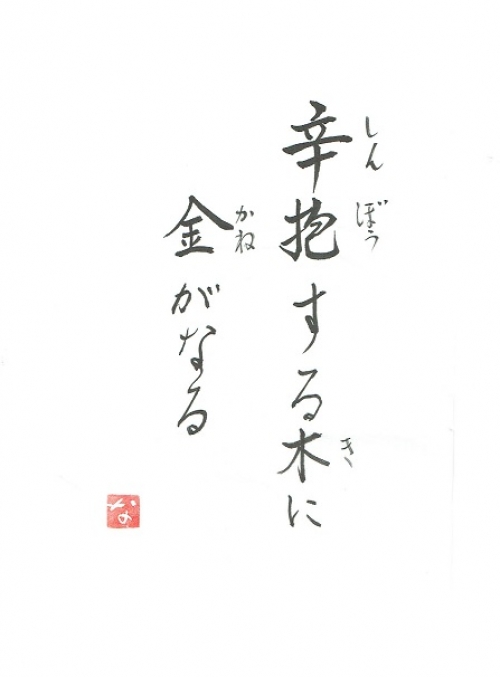 辛抱する木に
しんぼう
き
金がなる
かね